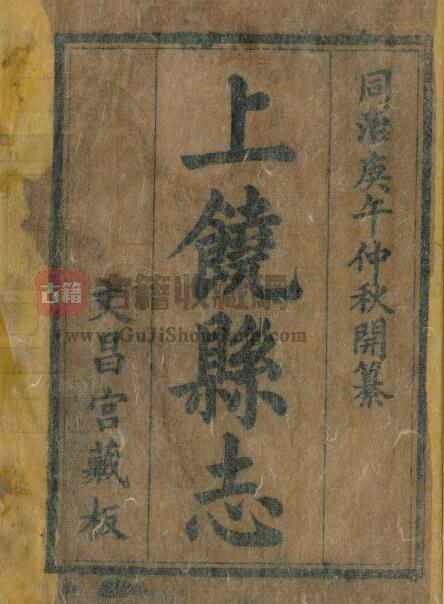 同治庚午仲秋開纂
上饒縣志
文昌宮藏板
古籍
古籍收藏網
www.GuJiShouCang.com